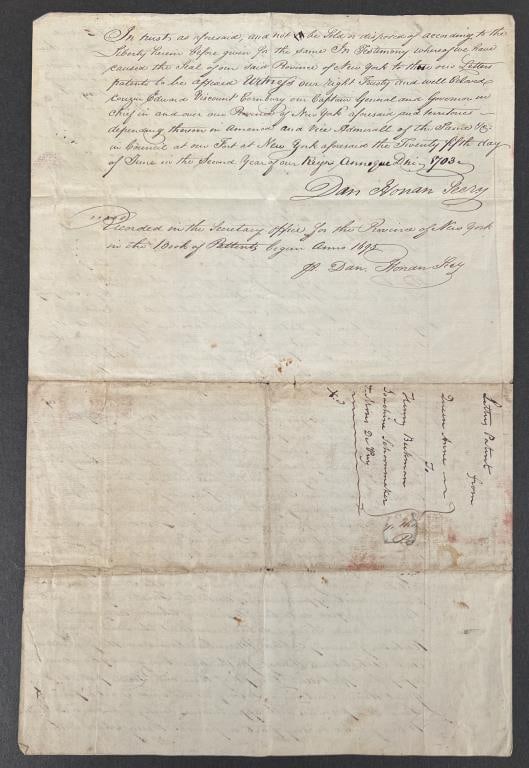 In trust as aforesaid, and not to be Sold or disposed of according to the
Liberty herein before given for the same In Testimony whereof we have
caused the Seal of our said Province of New York to these our Letters
patents to be affixed Witness our right Trusty and well Beloved
Cousin Edward Viscount Cornbury our Captain General and Governor in
Chief in and over our Province of New York aforesaid and territories
depending thereon in America and Vice Admirall of the Same &c
in Council at our Fort at New York aforesaid the Twenty fifth day
of June in the Second Year of our Reign Annoque Dni 1703.
Dan Honan Secry
Recorded in the Secretary office for the Province of New York
in the Book of Pattents begun Anno 1695
pr Dan. Honan Secy
Letters Patent from
Queen Anne
To
Henry Beekman
Joachine Schoonmaker
& Moses De Puy